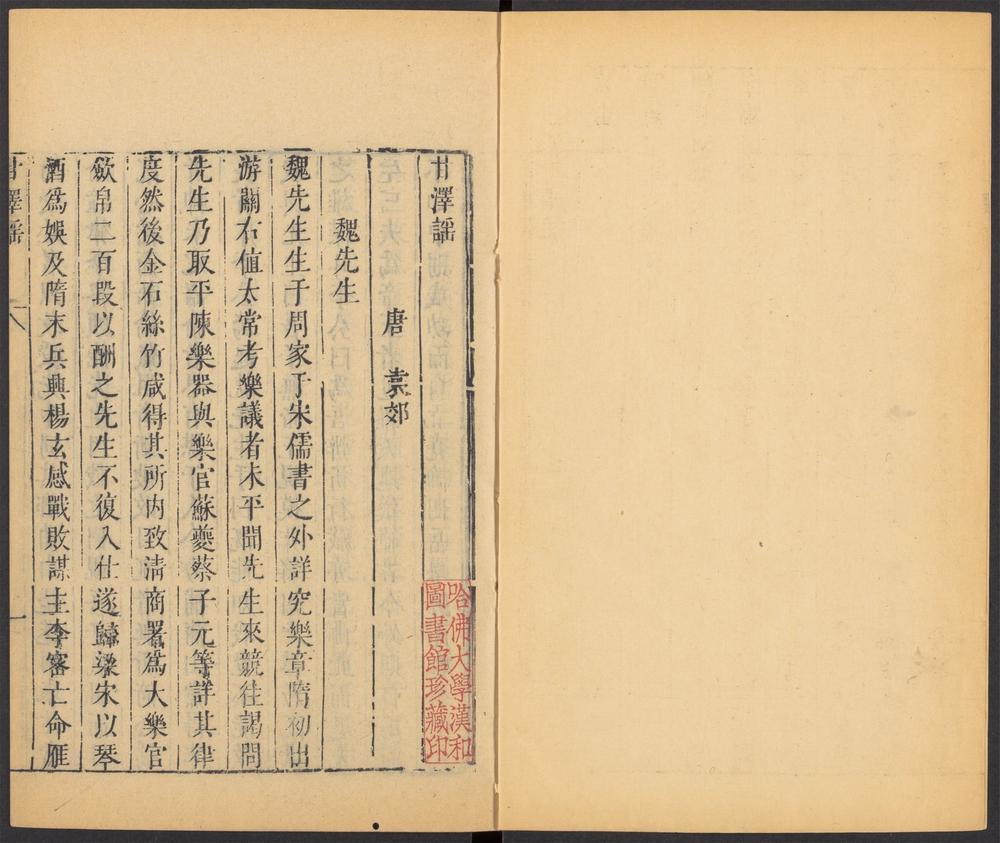 甘澤謠
唐　袁郊
魏先生
魏先生生于周家于朱儒書之外詳究樂章隋初出
游關右值太常考樂議者未平聞先生來競往謁問
先生乃取平陳樂器與樂官蘇夔蔡子元等詳其律
度然後金石絲竹咸得其所內致清商署為大樂官
歛帛二百段以酬之先生不復入仕遂歸梁宋以琴
酒為娛及隋末兵興楊玄感戰敗謀主李密亡命雁
甘澤謠　一
哈佛大學漢和
圖書館珍藏印